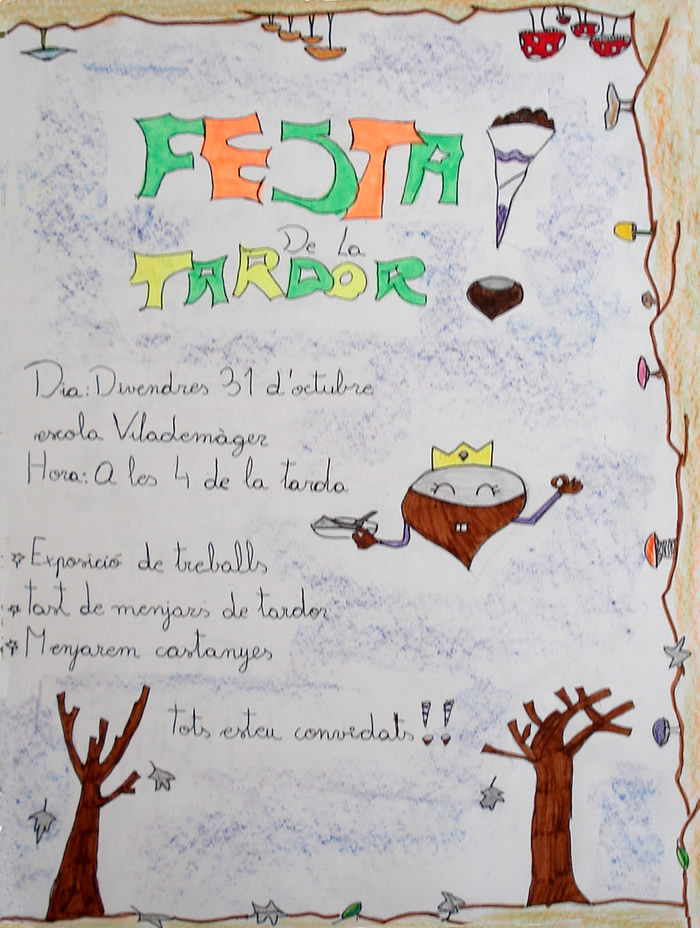 FESTA
De La
TARDOR
Dia: Divendres 31 d'octubre
escola Vilademàger
Hora: A les 4 de la tarda
* Exposició de treballs
* tast de menjars de tardor
* Menjarem castanyes
tots esteu convidats!!